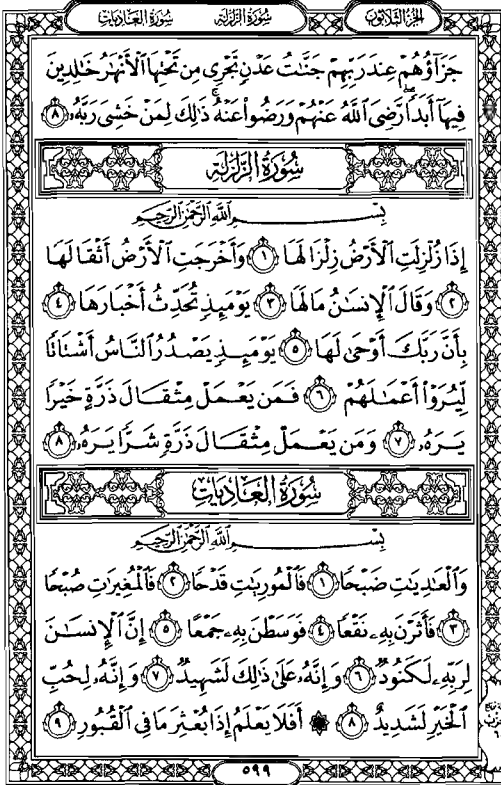 سُورَةُ العَادِيَاتِ سُورَةُ الزَّلْزَلَةِ الجُزْءُ الثَّلَاثُونَ
جَزَآؤُهُمْ عِندَ رَبِّهِمْ جَنَّٰتُ عَدْنٍ تَجْرِى مِن تَحْتِهَا ٱلْأَنْهَٰرُ خَٰلِدِينَ
فِيهَآ أَبَدًا ۖ رَّضِىَ ٱللَّهُ عَنْهُمْ وَرَضُوا۟ عَنْهُ ۚ ذَٰلِكَ لِمَنْ خَشِىَ رَبَّهُۥ ٨
سُورَةُ الزَّلْزَلَةِ
بِسْمِ ٱللَّهِ ٱلرَّحْمَٰنِ ٱلرَّحِيمِ
إِذَا زُلْزِلَتِ ٱلْأَرْضُ زِلْزَالَهَا ١ وَأَخْرَجَتِ ٱلْأَرْضُ أَثْقَالَهَا
٢ وَقَالَ ٱلْإِنسَٰنُ مَا لَهَا ٣ يَوْمَئِذٍ تُحَدِّثُ أَخْبَارَهَا ٤
بِأَنَّ رَبَّكَ أَوْحَىٰ لَهَا ٥ يَوْمَئِذٍ يَصْدُرُ ٱلنَّاسُ أَشْتَاتًا
لِّيُرَوْا۟ أَعْمَٰلَهُمْ ٦ فَمَن يَعْمَلْ مِثْقَالَ ذَرَّةٍ خَيْرًا
يَرَهُۥ ٧ وَمَن يَعْمَلْ مِثْقَالَ ذَرَّةٍ شَرًّا يَرَهُۥ ٨
سُورَةُ العَادِيَاتِ
بِسْمِ ٱللَّهِ ٱلرَّحْمَٰنِ ٱلرَّحِيمِ
وَٱلْعَٰدِيَٰتِ ضَبْحًا ١ فَٱلْمُورِيَٰتِ قَدْحًا ٢ فَٱلْمُغِيرَٰتِ صُبْحًا
٣ فَأَثَرْنَ بِهِۦ نَقْعًا ٤ فَوَسَطْنَ بِهِۦ جَمْعًا ٥ إِنَّ ٱلْإِنسَٰنَ
لِرَبِّهِۦ لَكَنُودٌ ٦ وَإِنَّهُۥ عَلَىٰ ذَٰلِكَ لَشَهِيدٌ ٧ وَإِنَّهُۥ لِحُبِّ
ٱلْخَيْرِ لَشَدِيدٌ ٨ ۞ أَفَلَا يَعْلَمُ إِذَا بُعْثِرَ مَا فِى ٱلْقُبُورِ ٩
٥٩٩